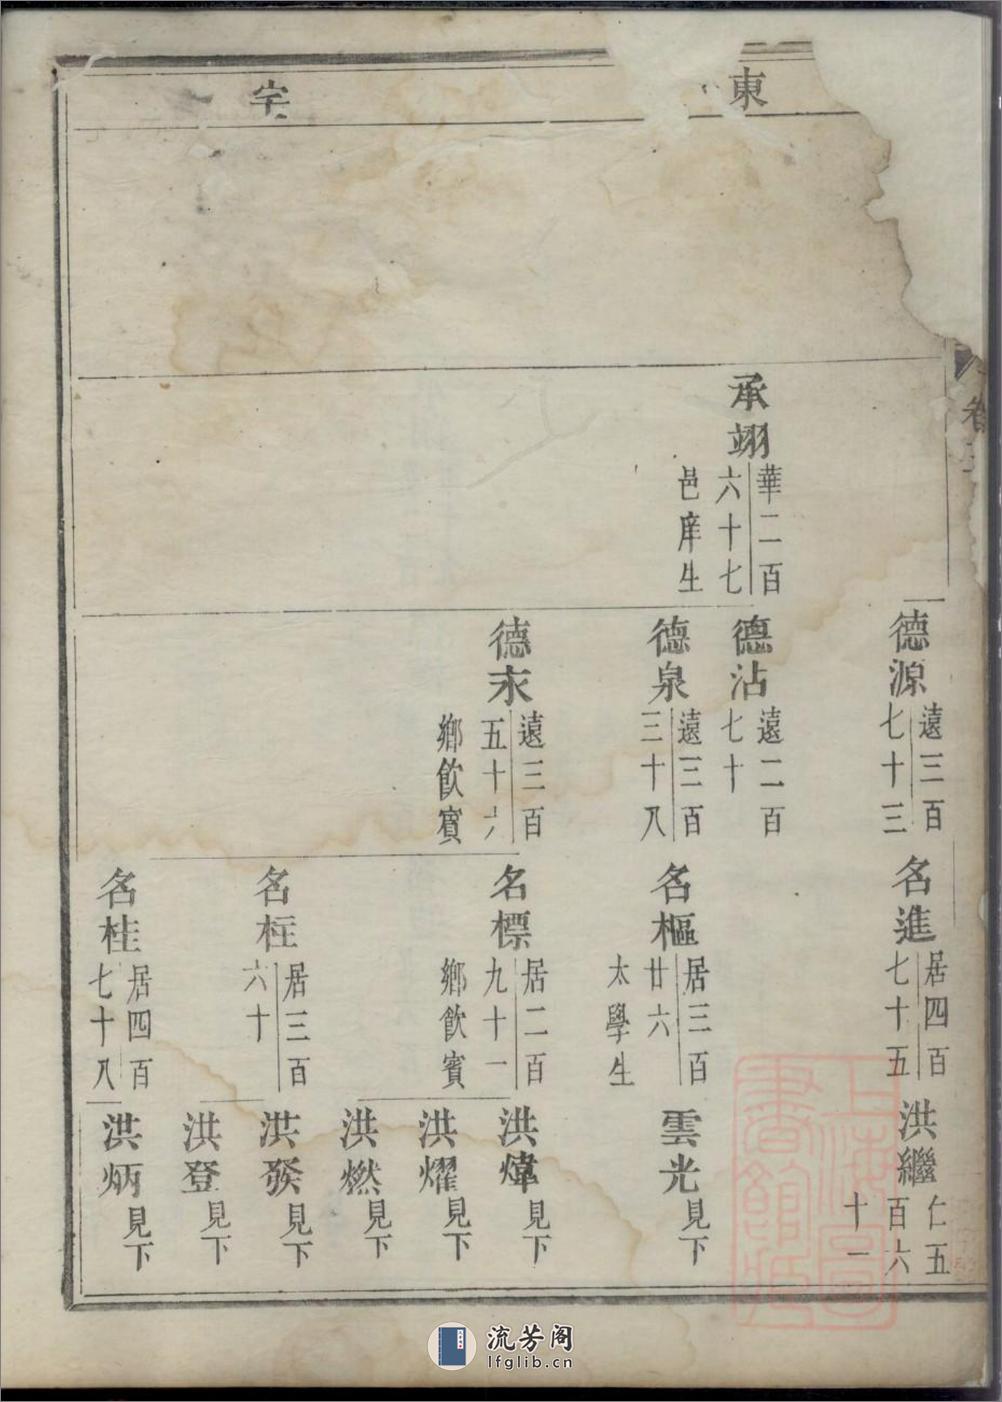 東
字
承翊
華二百
六十七
邑庠生
德源
遠三百
七十三
德沾
遠二百
七十
德泉
遠三百
三十八
德永
遠三百
五十六
鄉飲賓
名進
居四百
七十五
名樞
居三百
廿六
太學生
名標
居二百
九十一
鄉飲賓
名柱
居三百
六十
名桂
居四百
七十八
洪繼
仁五
百六
十一
雲光
見下
洪煒
見下
洪燿
見下
洪燃
見下
洪發
見下
洪登
見下
洪炳
見下
卷
上海圖
書館藏
流芳阁
lfglib.cn